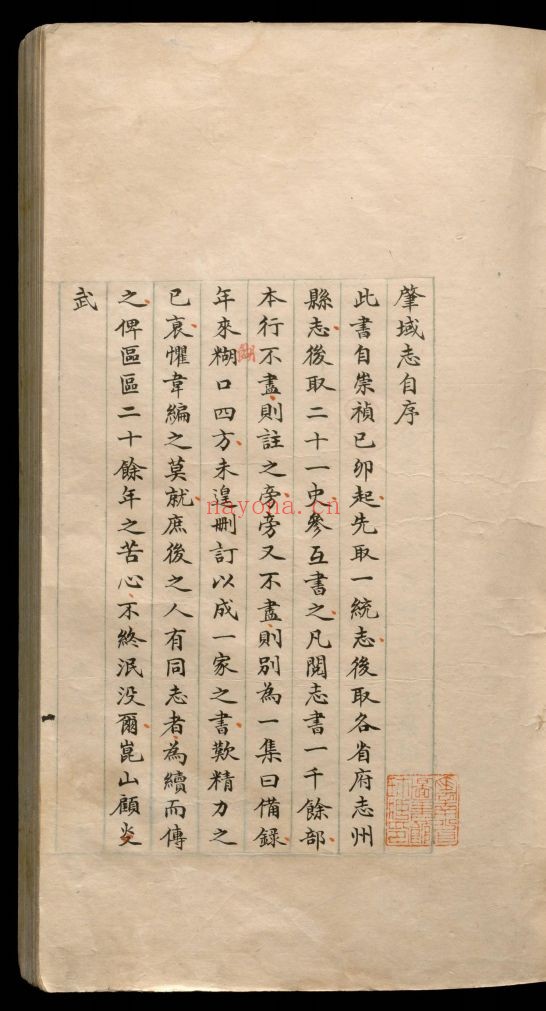 肇域志自序
此書自崇禎己卯起先取一統志後取各省府志州
縣志後取二十一史參互書之凡閱志書一千餘部
本行不盡則註之旁旁又不盡則別為一集曰備錄
年來糊口四方未遑刪訂以成一家之書歎精力之
餬
已衰懼韋編之莫就庶後之人有同志者為續而傳
之俾區區二十餘年之苦心不終泯沒爾崑山顧炎
武
nayona.cn